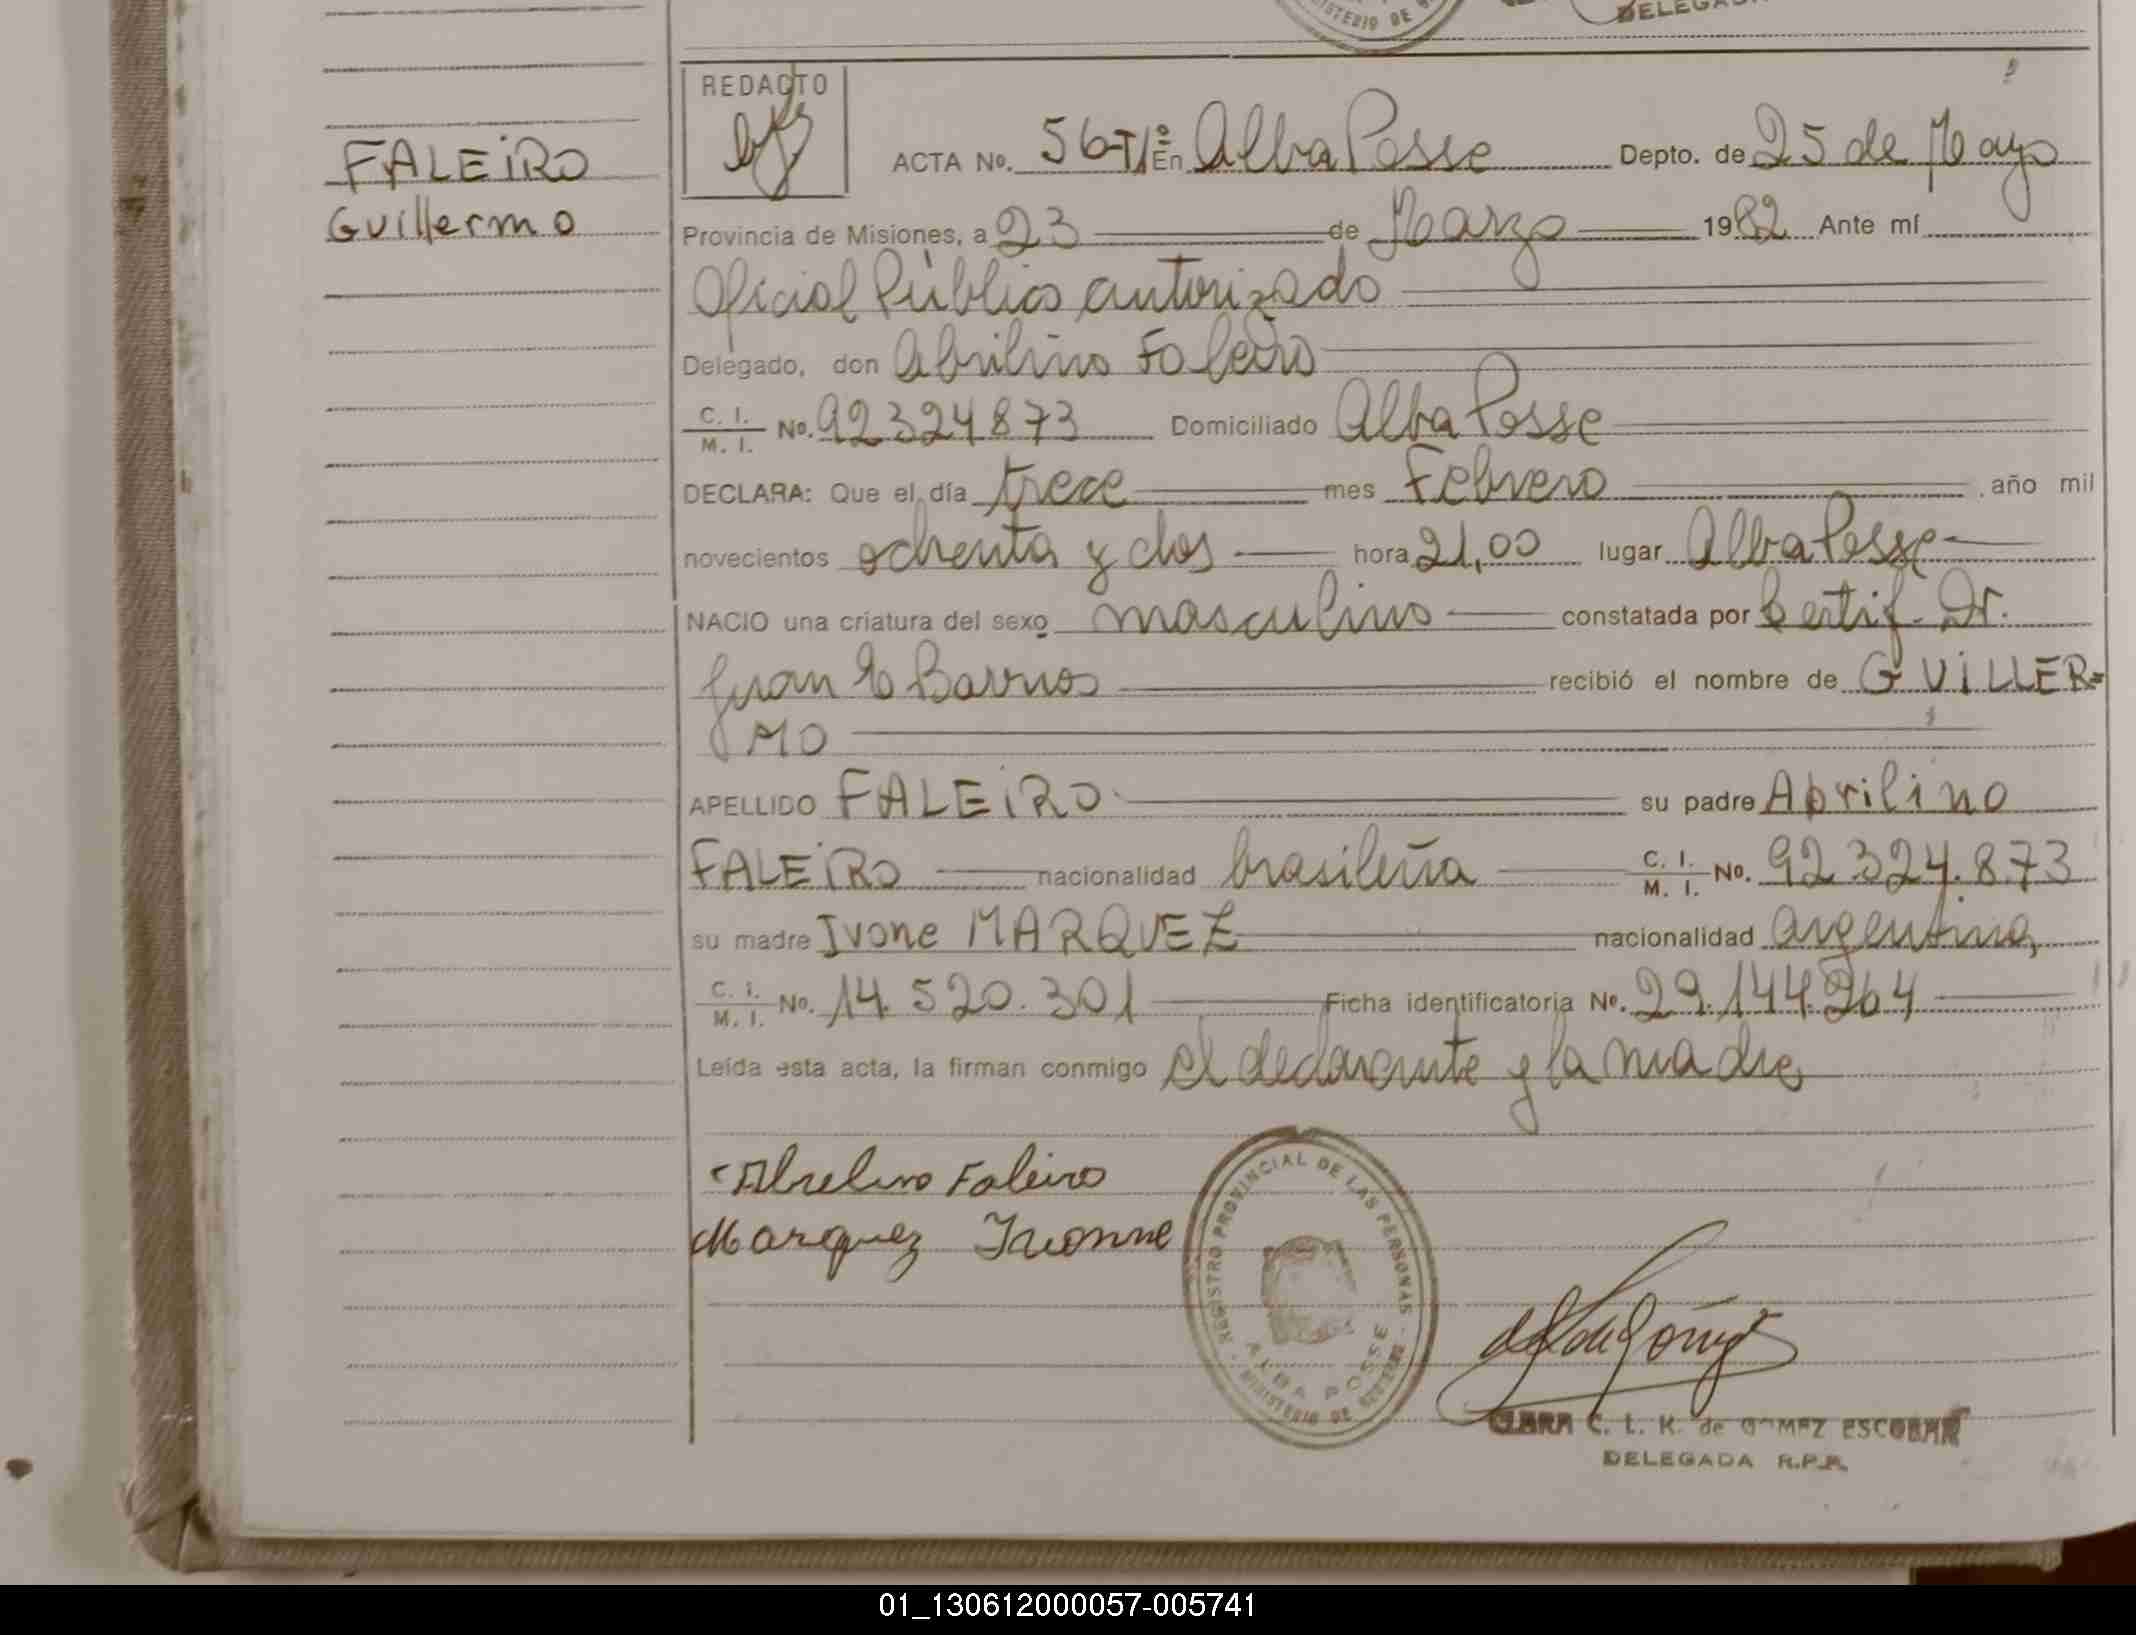 MINISTERIO DE
DELEGADA
REDACTO
FALEIRO
Guillermo
ACTA No. 56-T/1º En Alba Posse Depto. de 25 de Mayo
Provincia de Misiones, a 23 de Marzo 1982 Ante mí
Oficial Público autorizado
Delegado, don Abrilino Faleiro
C. I. / M. I. No. 92324873 Domiciliado Alba Posse
DECLARA: Que el día trece mes Febrero año mil
novecientos ochenta y dos hora 21,00 lugar Alba Posse
NACIO una criatura del sexo masculino constatada por Certif. Dr.
Juan E Barrios recibió el nombre de GUILLER=
MO
APELLIDO FALEIRO su padre Abrilino
FALEIRO nacionalidad brasileña C. I. / M. I. No. 92.324.873
su madre Ivone MARQUEZ nacionalidad argentina,
C. I. / M. I. No. 14.520.301 Ficha identificatoria No. 29.144.264
Leída esta acta, la firman conmigo el declarante y la madre
Abrelino Faleiro
Marquez Ivonne
REGISTRO PROVINCIAL DE LAS PERSONAS
ALBA POSSE
MINISTERIO DE GOBIERNO
CLARA C. L. K. de GOMEZ ESCOBAR
DELEGADA R.P.P.
01_130612000057-005741